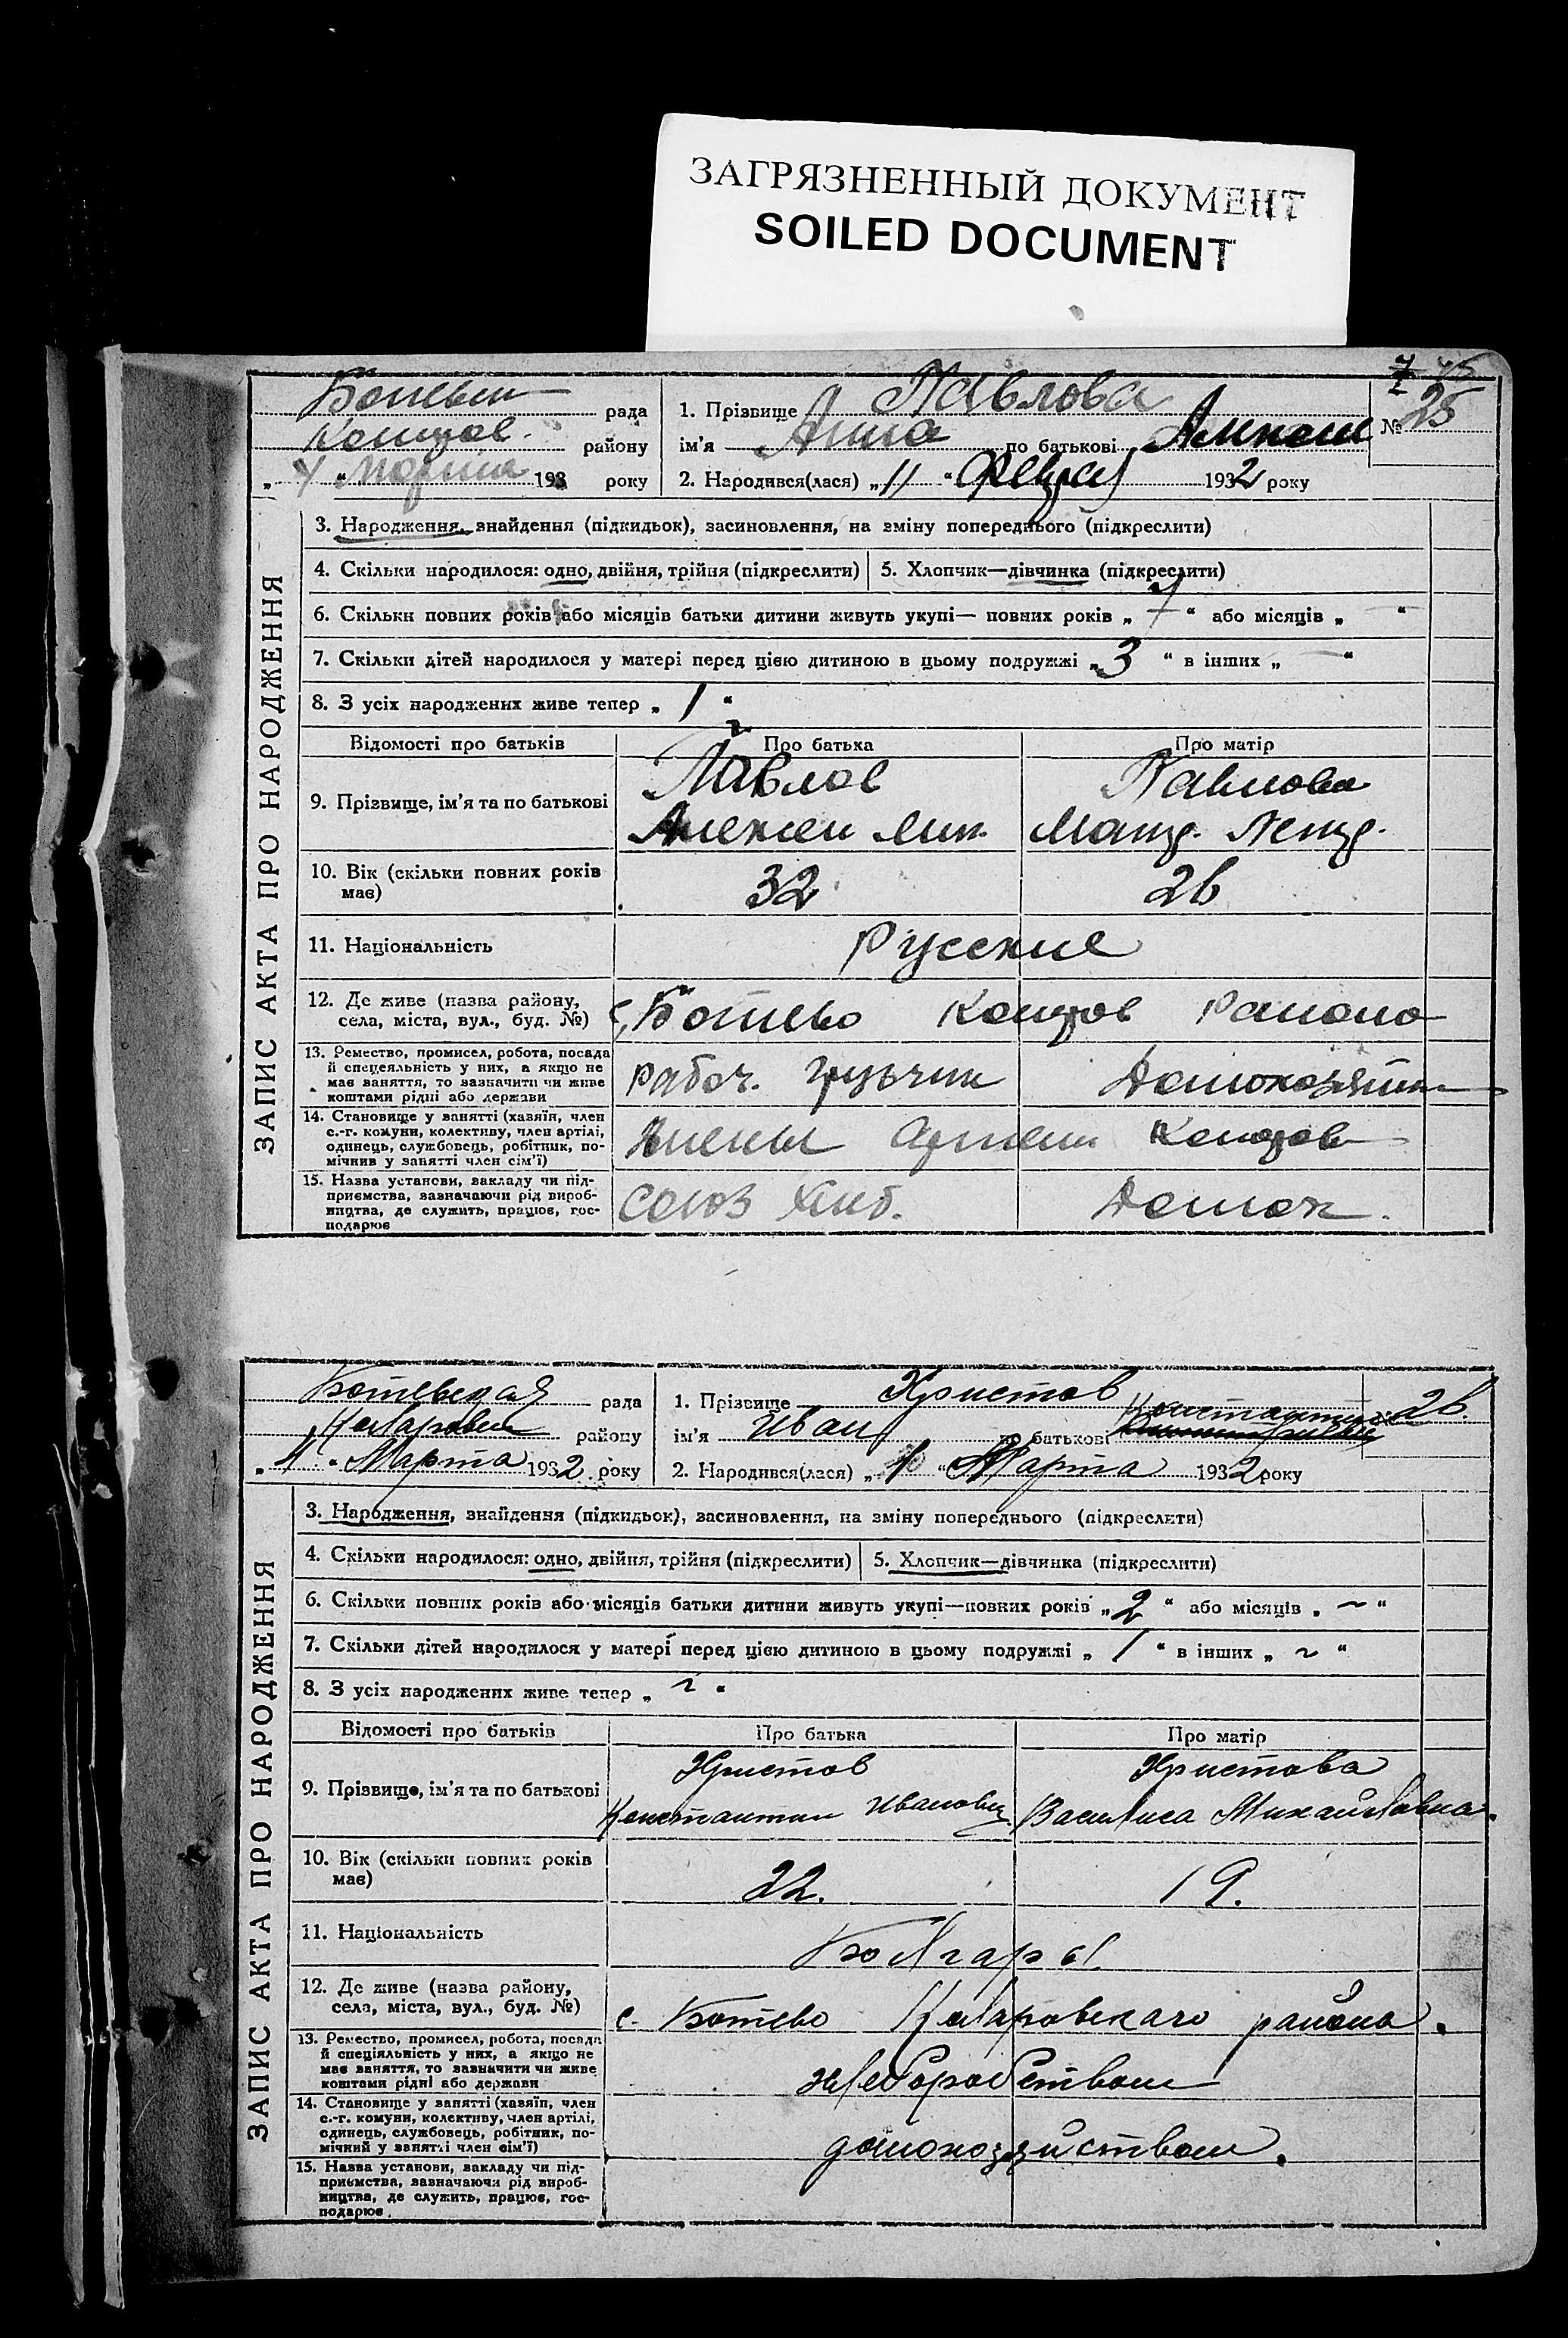 ЗАГРЯЗНЕННЫЙ ДОКУМЕНТ
SOILED DOCUMENT
рада
району
193 року
1. Прізвище Павлова
ім'я Анна по батькові
2. Народився(лася) „11“ 1932 року
№ 25
ЗАПИС АКТА ПРО НАРОДЖЕННЯ
3. Народження, знайдення (підкидьок), засиновлення, на зміну попереднього (підкреслити)
4. Скільки народилося: одно, двійня, трійня (підкреслити)
5. Хлопчик—дівчинка (підкреслити)
6. Скільки повних років або місяців батьки дитини живуть укупі— повних років „7“ або місяців „—“
7. Скільки дітей народилося у матері перед цією дитиною в цьому подружжі „3“ в інших „—“
8. З усіх народжених живе тепер „1“
Відомості про батьків
Про батька
Про матір
9. Прізвище, ім'я та по батькові
Павлов
Павлова
10. Вік (скільки повних років
має)
32
26
11. Національність
Русские
12. Де живе (назва району,
села, міста, вул., буд. №)
с. Ботево
13. Ремество, промисел, робота, посада
й спецеяльність у них, а якщо не
має заняття, то зазначити чи живе
коштами рідні або держави
рабоч. грузчик
14. Становище у занятті (хазяїн, член
с.-г. комуни, колективу, член артілі,
одинець, службовець, робітник, по-
мічнив у занятті член сім'ї)
15. Назва установи, закладу чи під-
приємства, зазначаючи рід вироб-
ництва, де служить, працює, гос-
подарює
Союз Хлеб.
Ботевская рада
району
„1“ Марта 1932 року
1. Прізвище Христов
ім'я Иван по батькові
2. Народився(лася) „1“ Марта 1932 року
26.
ЗАПИС АКТА ПРО НАРОДЖЕННЯ
3. Народження, знайдення (підкидьок), засиновлення, на зміну попереднього (підкреслити)
4. Скільки народилося: одно, двійня, трійня (підкреслити)
5. Хлопчик—дівчинка (підкреслити)
6. Скільки повних років або місяців батьки дитини живуть укупі—повних років „2“ або місяців „~“
7. Скільки дітей народилося у матері перед цією дитиною в цьому подружжі „1“ в інших „~“
8. З усіх народжених живе тепер „~“
Відомості про батьків
Про батька
Про матір
9. Прізвище, ім'я та по батькові
Христов
Константин Иванович
Христова
Василиса Михайловна.
10. Вік (скільки повних років
має)
22.
19.
11. Національність
Болгары.
12. Де живе (назва району,
села, міста, вул., буд. №)
с. Ботево Коларовскаго района.
13. Ремество, промисел, робота, посада
й спеціяльність у них, а якщо не
має заняття, то зазначити чи живе
коштами рідні або держави
хлеборобством
14. Становище у занятті (хазяїн, член
с.-г. комуни, колективу, член артілі,
одинець, службовець, робітник, по-
мічний у занятті член сім'ї)
домохозяйством.
15. Назва установи, закладу чи під-
приємства, зазначаючи рід вироб-
ництва, де служить, працює, гос-
подарює.